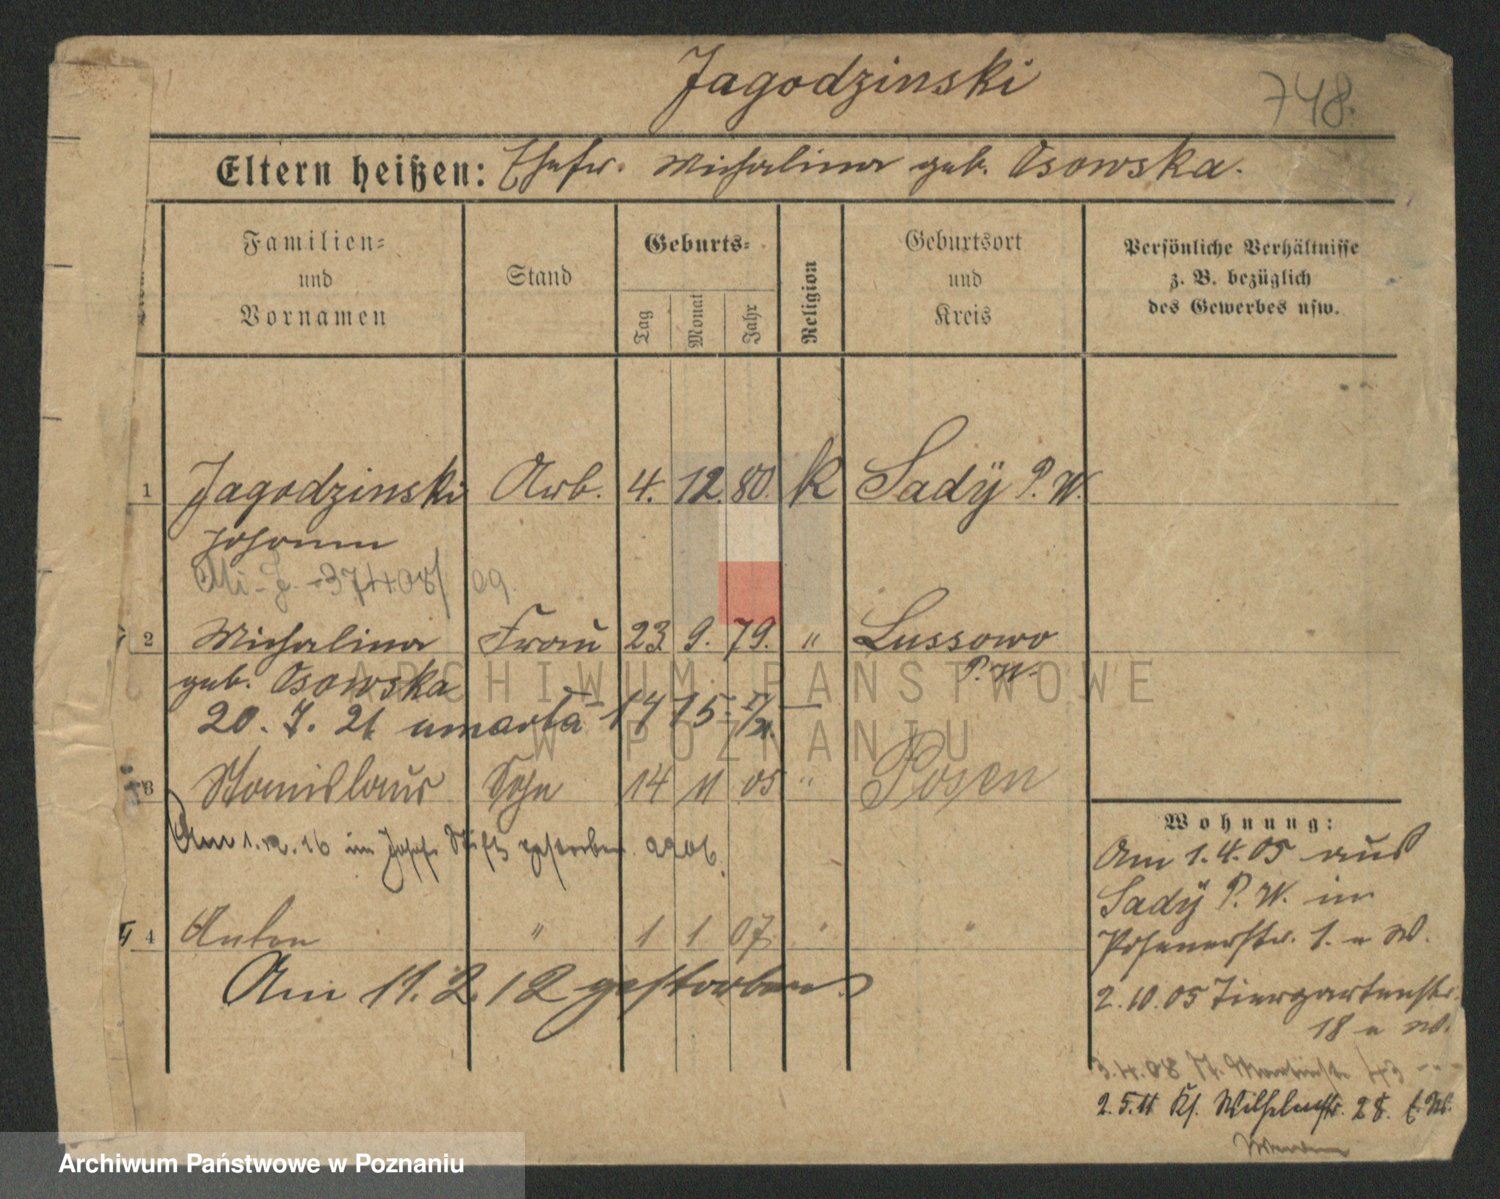 Jagodzinski
748.
Eltern heißen: Ehefr. Michalina geb. Osowska.
Familien= und Vornamen
Stand
Geburts=
Tag
Monat
Jahr
Religion
Geburtsort und Kreis
Persönliche Verhältnisse
z. B. bezüglich
des Gewerbes usw.
1 Jagodzinski Arb. 4. 12. 80. k Sady P. W.
Johann
09.
2 Michalina Frau 23. 9. 79. " Lussowo
geb. Osowska P. W.
20. 7. 21 umarła
3 Stanislaus Sohn 14 11 05 " Posen
Am 1.12.16 im Josefs Stift gestorben. 2206.
4 Anton " 1 1 07. " "
Am 11.2.12 gestorben
Wohnung:
Am 1.4.05 aus
Sady P. W. in
Posenerstr. 1. e W.
2.10.05 Tiergartenstr.
18 e W.
3.4.08 St. Martinstr. 43
2.5.11 Kl. Wilhelmstr. 28.
ARCHIWUM PAŃSTWOWE
W POZNANIU
Archiwum Państwowe w Poznaniu